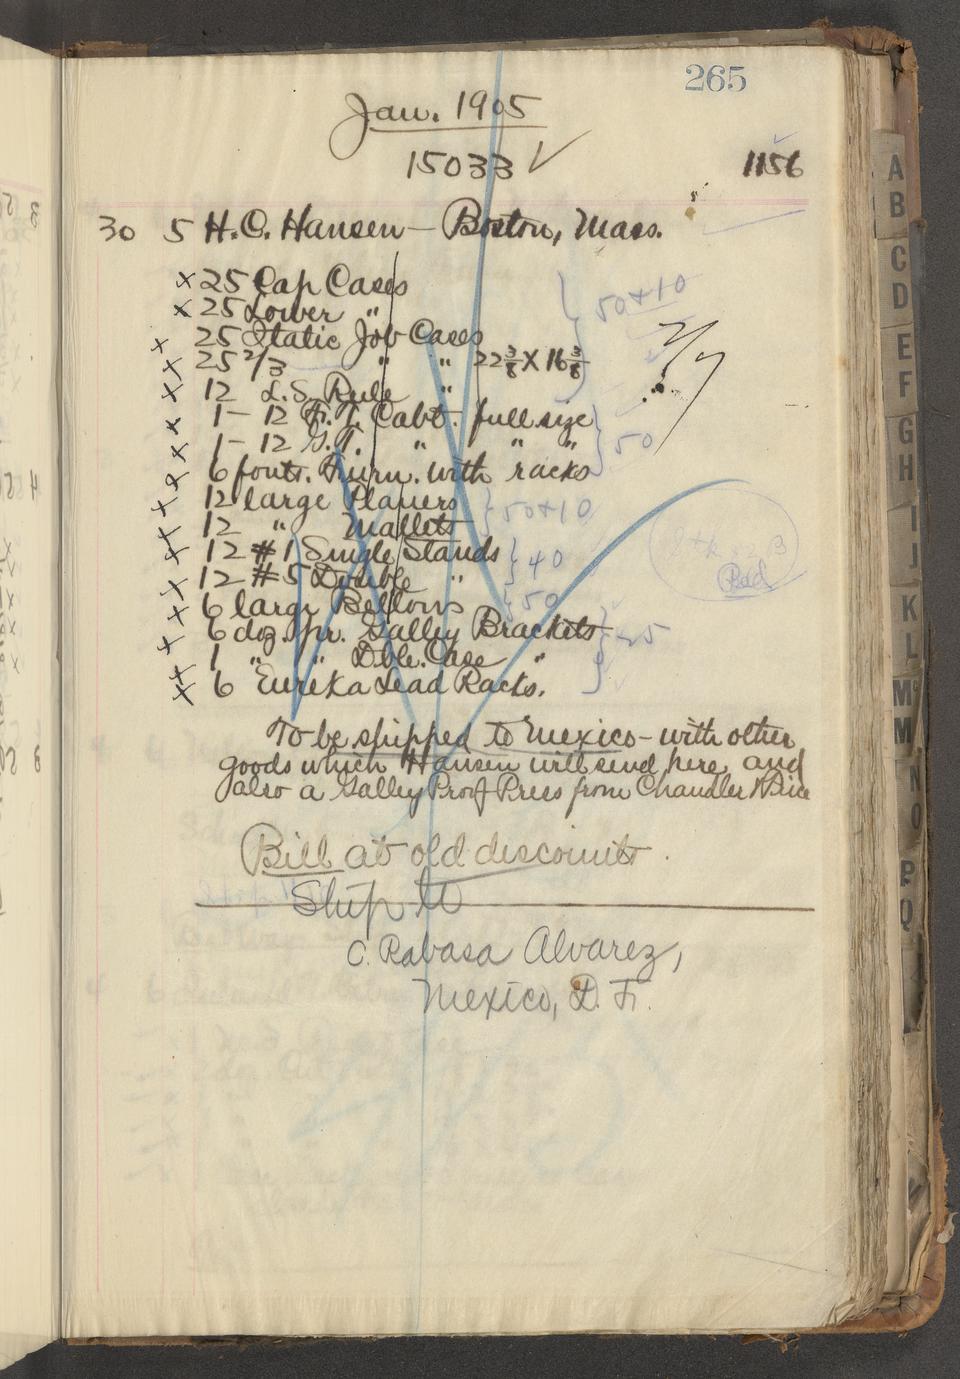 265
Jan. 1905
15033 ✓
1156
30 5 H.C. Hansen — Boston, Mass.
x 25 Cap Cases
x 25 Lower "
50+10
x 25 Italic Job Cases
x 25 2/3 " " 22 3/8 X 16 3/8
2/7
x 12 L.S. Rule "
x 1 - 12 F.T. Cabt. full size
x 1 - 12 G.T. " " "
50
x 6 fonts. Furn. with racks
x 12 large Planers
50+10
x 12 " Mallets
x 12 #1 Single Stands
40
x 12 #5 Double "
x 6 large Bellows
50
x 6 doz. pr. Galley Brackets
25
x 1 " " Dble. Case "
x 6 Eureka Lead Racks.
To be shipped to Mexico - with other
goods which Hansen will send here, and
also a Galley Proof Press from Chandler & Price
Bill at old discounts.
Ship to
C. Rabasa Alvarez,
Mexico, D. F.
A
B
C
D
E
F
G
H
I
J
K
L
M
M
N
O
P
Q